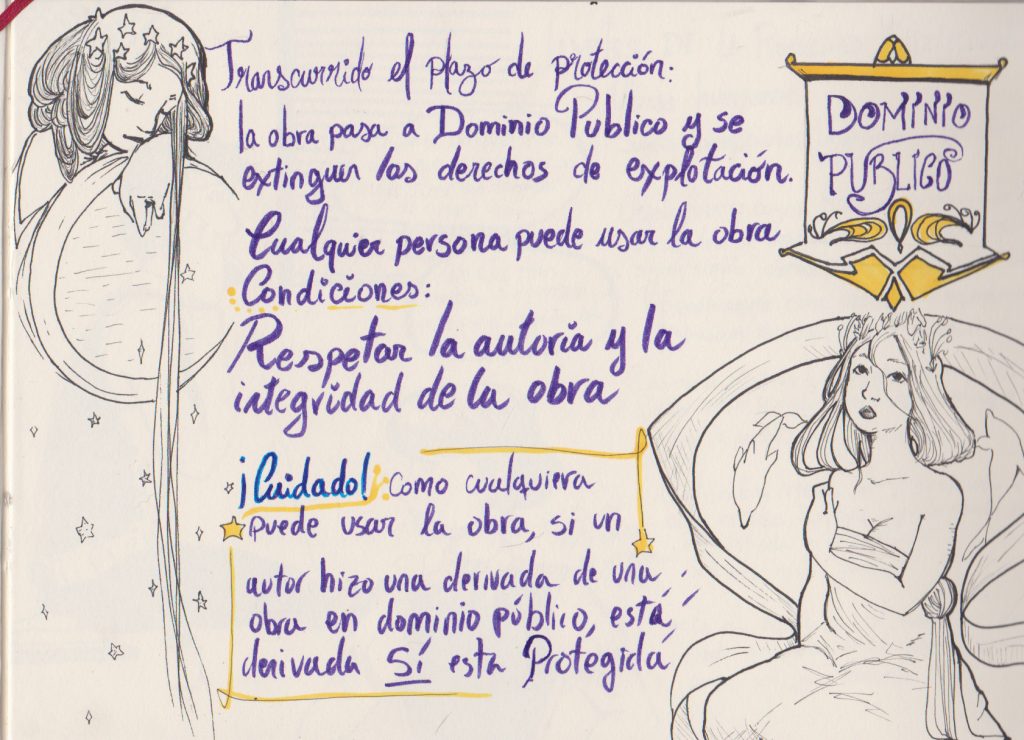 Transcurrido el plazo de protección:
la obra pasa a Dominio Publico y se
extinguen los derechos de explotación.
Cualquier persona puede usar la obra
Condiciones:
Respetar la autoria y la
integridad de la obra
¡Cuidado!: Como cualquiera
puede usar la obra, si un
autor hizo una derivada de una
obra en dominio público, está
derivada SÍ esta Protegida
DOMINIO
PUBLICO